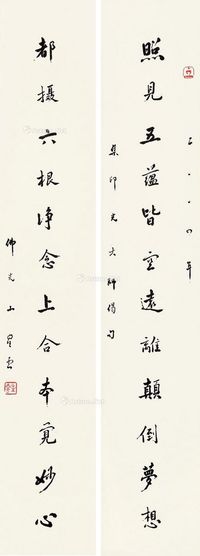 照見五蘊皆空遠離顛倒夢想
二〇〇四年
集印光大師偈句
都攝六根淨念上合本覺妙心
佛光山星雲